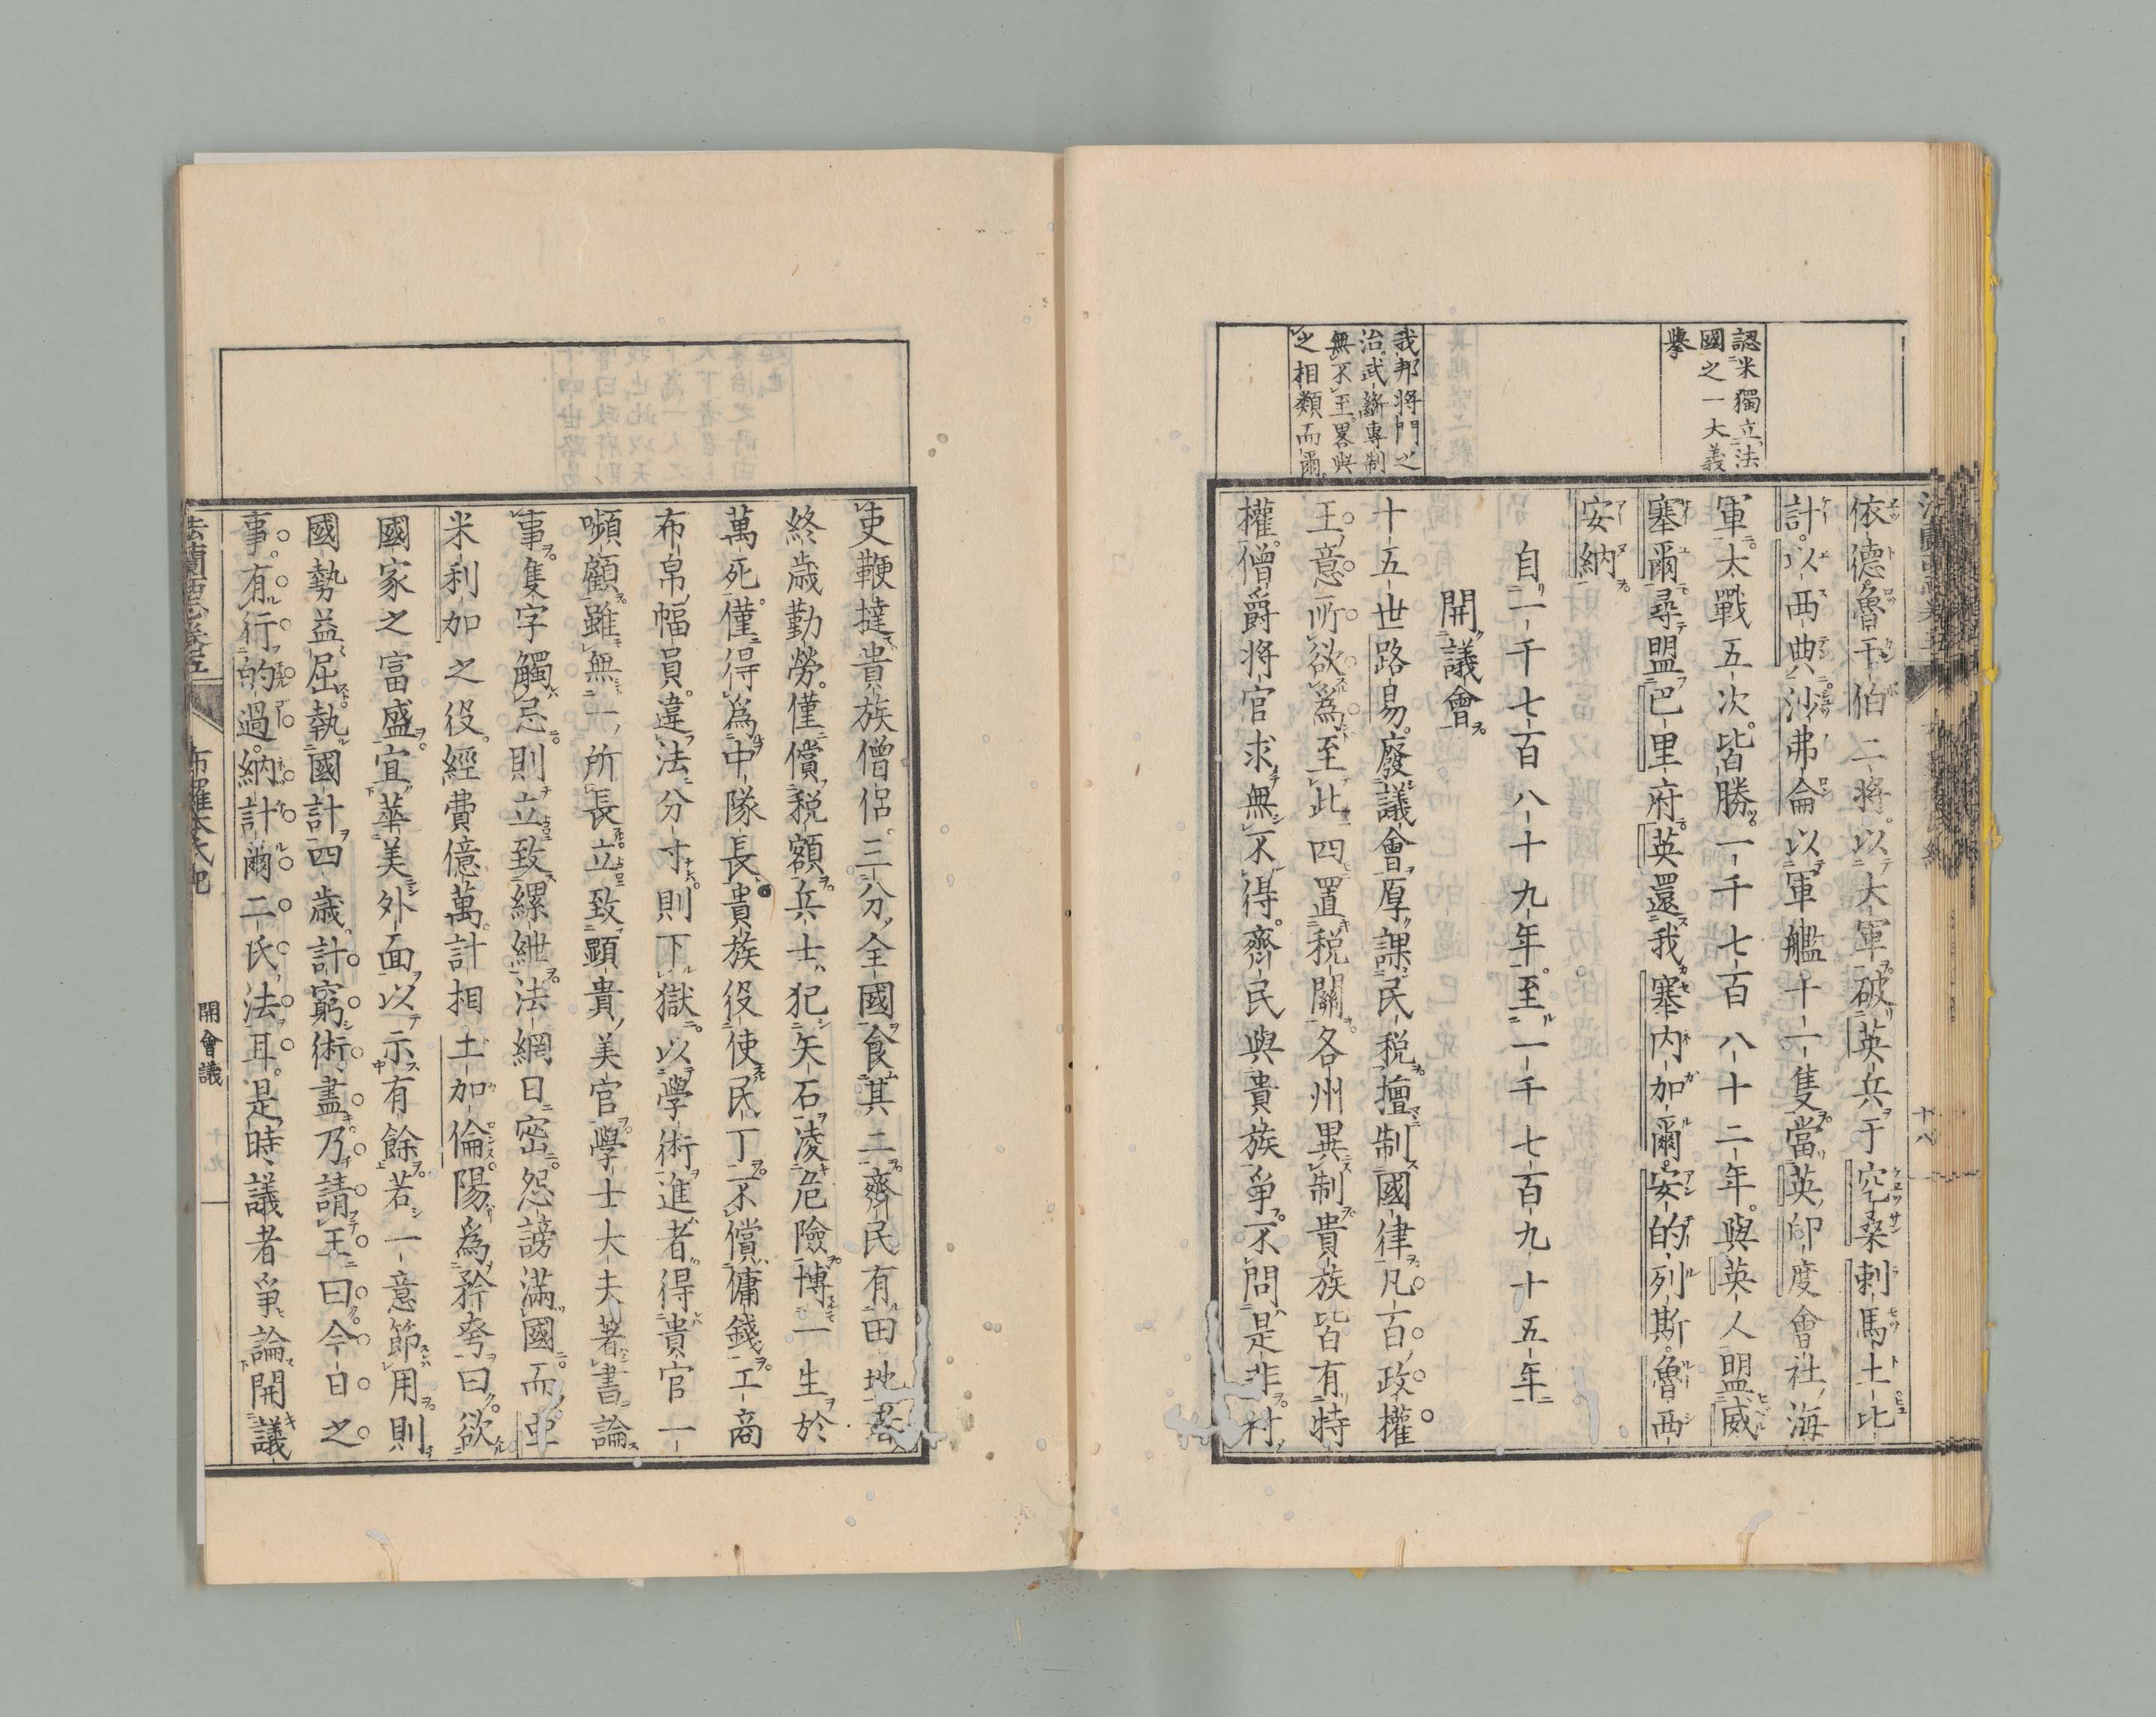 認米獨立法
國之一大義
擧
我邦将門之
治武斷專制
無不至畧與
之相類而爾
依德魯千伯二將以大軍破英兵于窆桑剌馬土比
計以西典沙弗侖以軍艦十一隻當英印度會社海
軍大戰五次皆勝一千七百八十二年與英人盟威
塞爾尋盟巴里府英還我塞内加爾安的列斯魯西
安納
自一千七百八十九年至一千七百九十五年
開議會
十五世路易廢議會厚課民税擅制國律凡百政權
王意所欲爲至此四置税關各州異制貴族皆有特
權僧爵将官求無不得齊民與貴族爭不問是非村
吏鞭撻貴族僧侶三分全國食其二齊民有田地者
終歳勤勞僅償税額兵士犯矢石凌危險博一生於
萬死僅得爲中隊長貴族役使民丁不償傭錢工商
布帛幅員違法分寸則下獄以學術進者得貴官一
嚬顧雖無一所長立致顯貴美官學士大夫著書論
事隻字觸忌則立致縲紲法網日密怨謗滿國而亞
米利加之役經費億萬計相土加倫陽爲矜夸曰欲
國家之富盛宜華美外面以示有餘若一意節用則
國勢益屈執國計四歳計窮術盡乃請王曰今日之
事有行的過納計爾二氏法耳是時議者爭論開議
法蘭西志卷五
布羅奔氏紀
開會議
十九
十八